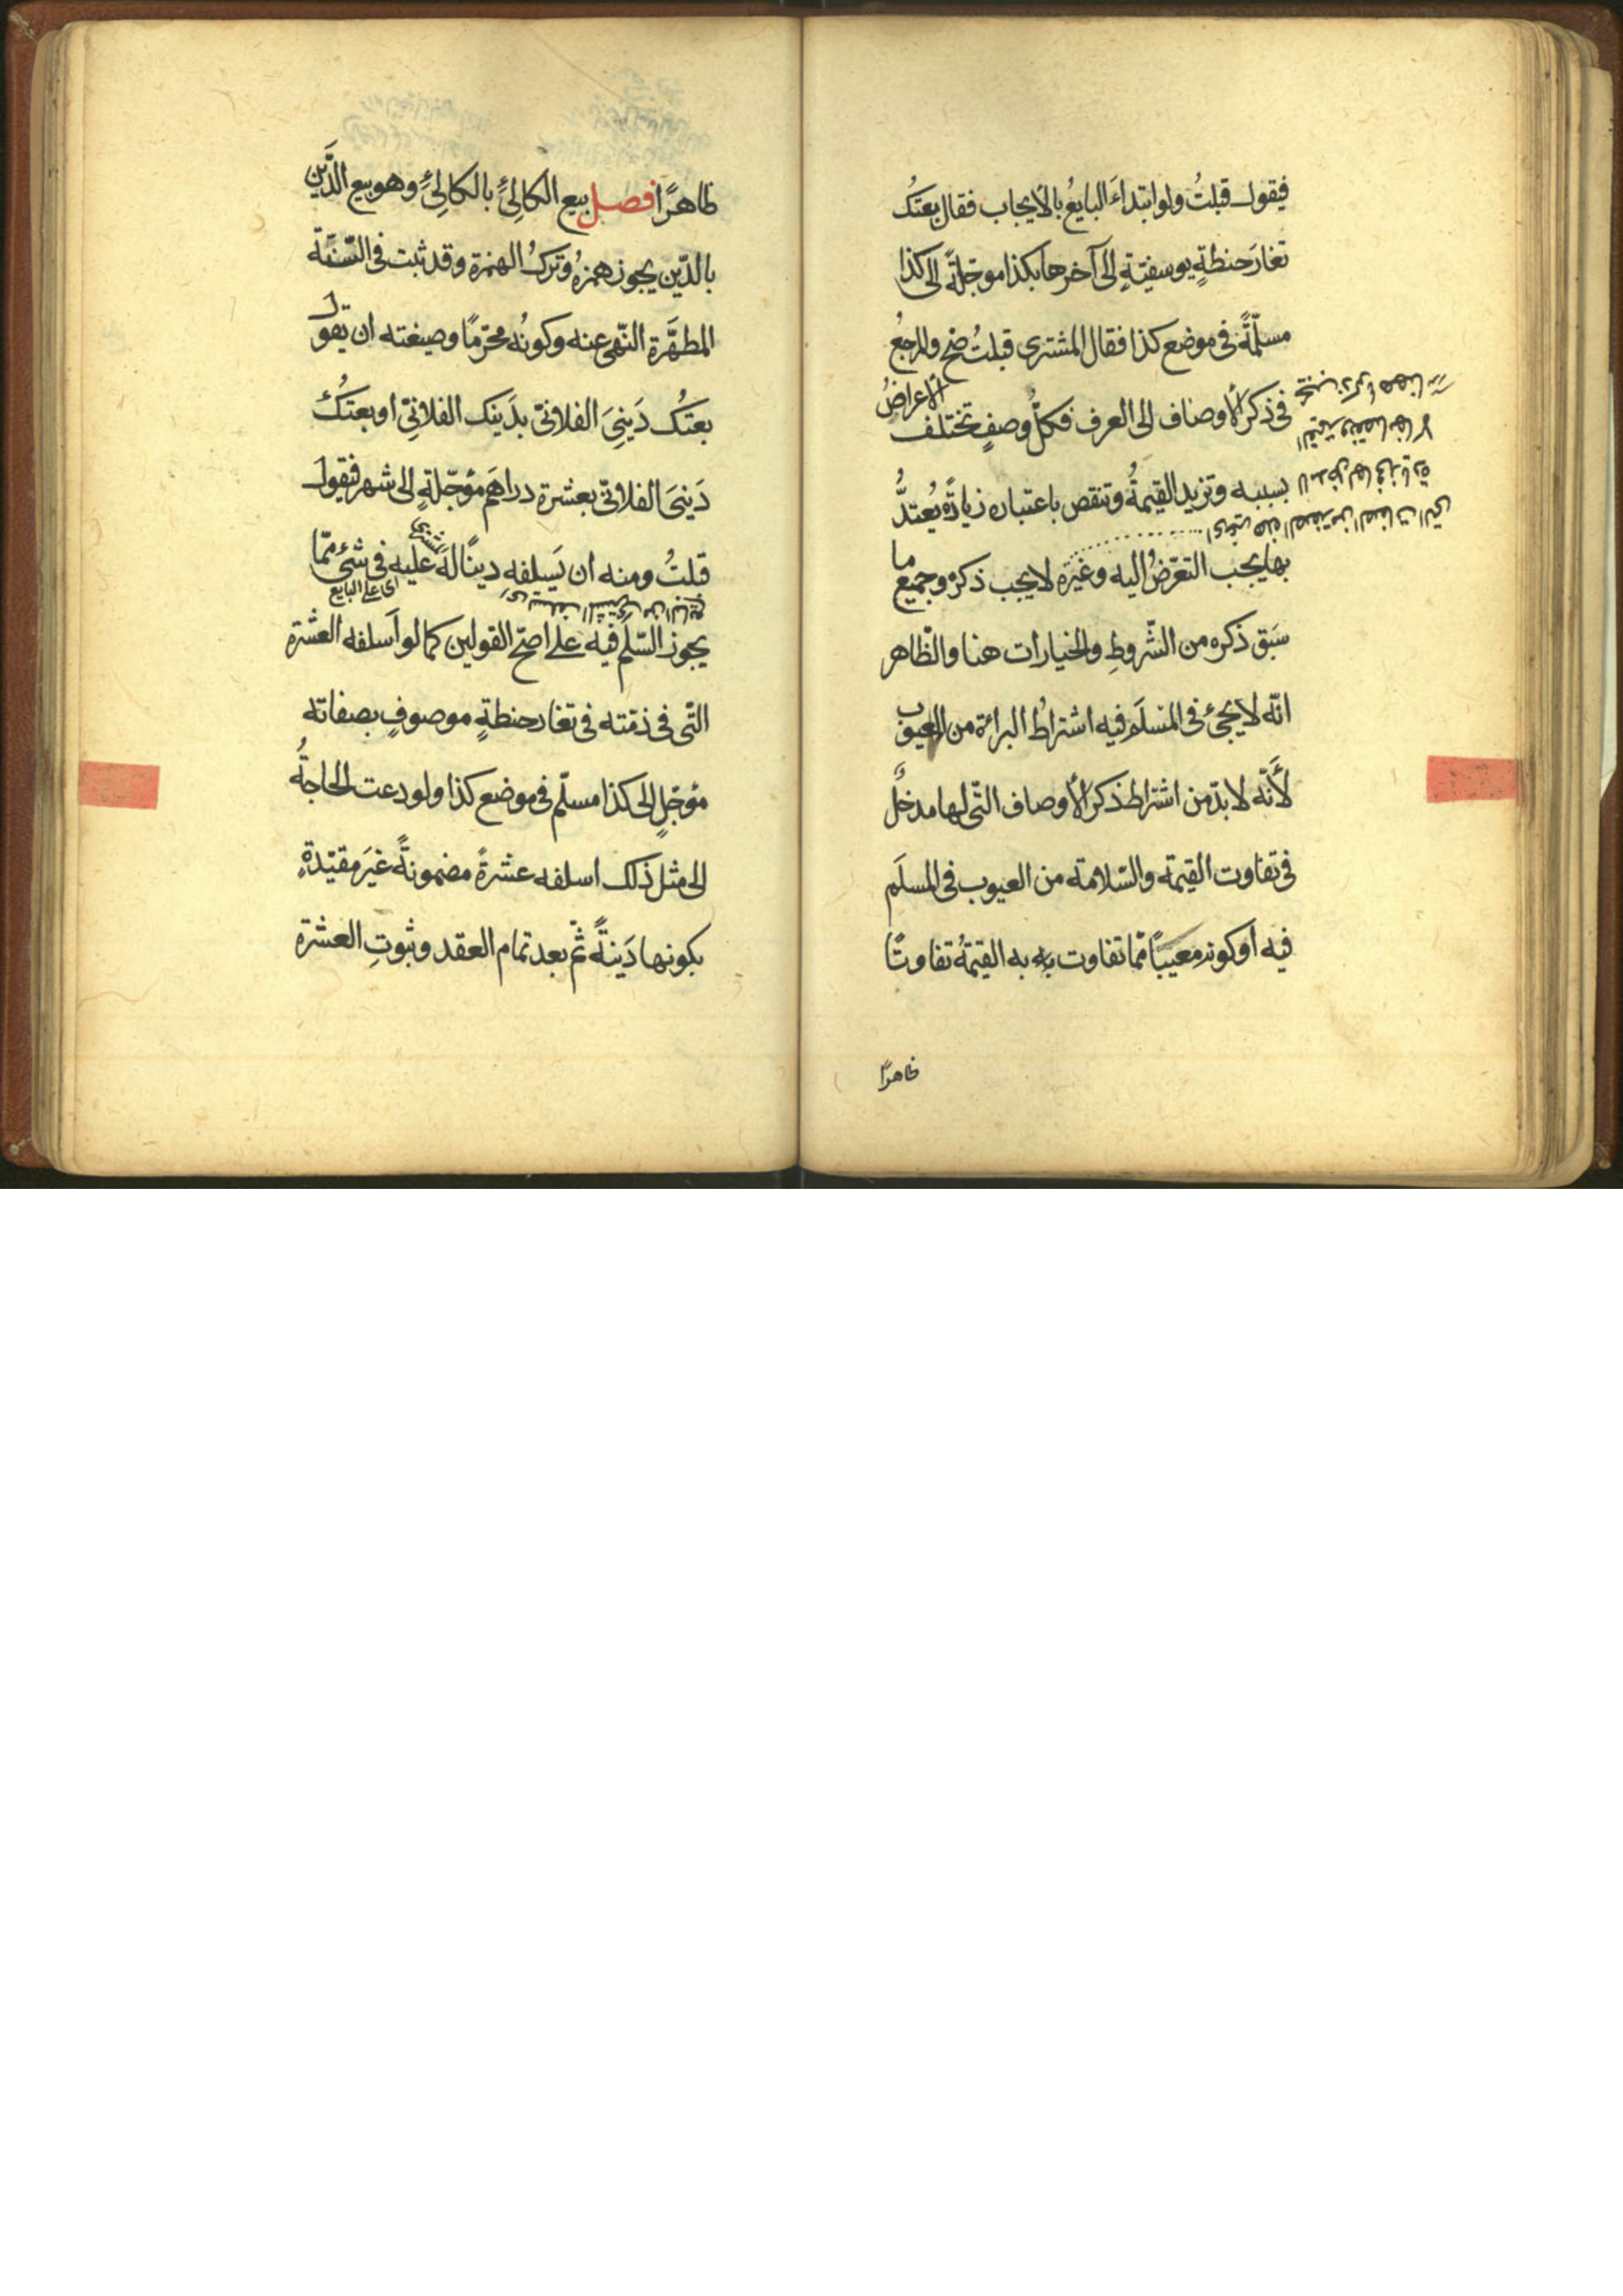 فيقول قبلتُ ولو ابتداءَ البايعُ بالأيجاب فقال بعتُك
تغارَ حنطةٍ يوسفيّةٍ الى آخرها بكذا موجّلةً الى كذا
مسلّمةً فى موضع كذا فقال المشترى قبلتُ صَحّ والمرجعُ
فى ذكر الأوصاف الى العرف فكلُّ وصفٍ تختلف الأعراضُ
بسببه وتزيد القيمةُ وتنقص باعتباره زيادةً يُعتدُّ
بها يجب التعرّضُ اليه وغيرُه لا يجب ذكره وجميع ما
سَبَق ذكره من الشّروطِ والخيارات هنا والظّاهر
انّه لا يجئ فى المسلَم فيه اشتراطُ البرائة من العيوب
لأنّه لا بدّ من اشتراط ذكر الأوصاف التّى لها مدخلٌ
فى تفاوت القيمة والسّلامة من العيوب فى المسلَم
فيه او كونه معيبًا ممّا تفاوت به به القيمةُ تفاوتًا
ظاهرًا
ظاهرًا فصل بيع الكالِئِ بالكالِئِ وهو بيع الدَّين
بالدّين يجوز همزهُ وتركُ الهمزة وقد ثبت فى السّنّة
المطهَّرة النّهى عنه وكونُه محرّمًا وصيغته ان يقول
بعتُك دَينِىَ الفلانىّ بدَينِك الفلانىّ او بعتُك
دَينىَ الفلانىّ بعشرة دراهَم مؤجّلةٍ الى شهر فيقول
قبلتُ ومنه ان يَسلفه دينًا لهُ عليه فى شئٍ ممّا
اى على البايع
يجوز السّلَم فيه على اصحّ القولين كما لو اَسلفه العشرة
التّى فى ذمّته فى تغار حنطةٍ موصوفٍ بصفاته
مؤجّلٍ الى كذا مسلّم فى موضع كذا ولو دعت الحاجةُ
الى مثل ذلك اسلفه عشرةً مضمونةً غيَر مقيّدةٍ
بكونها دَينةً ثمّ بعد تمام العقد وثبوتِ العشرة